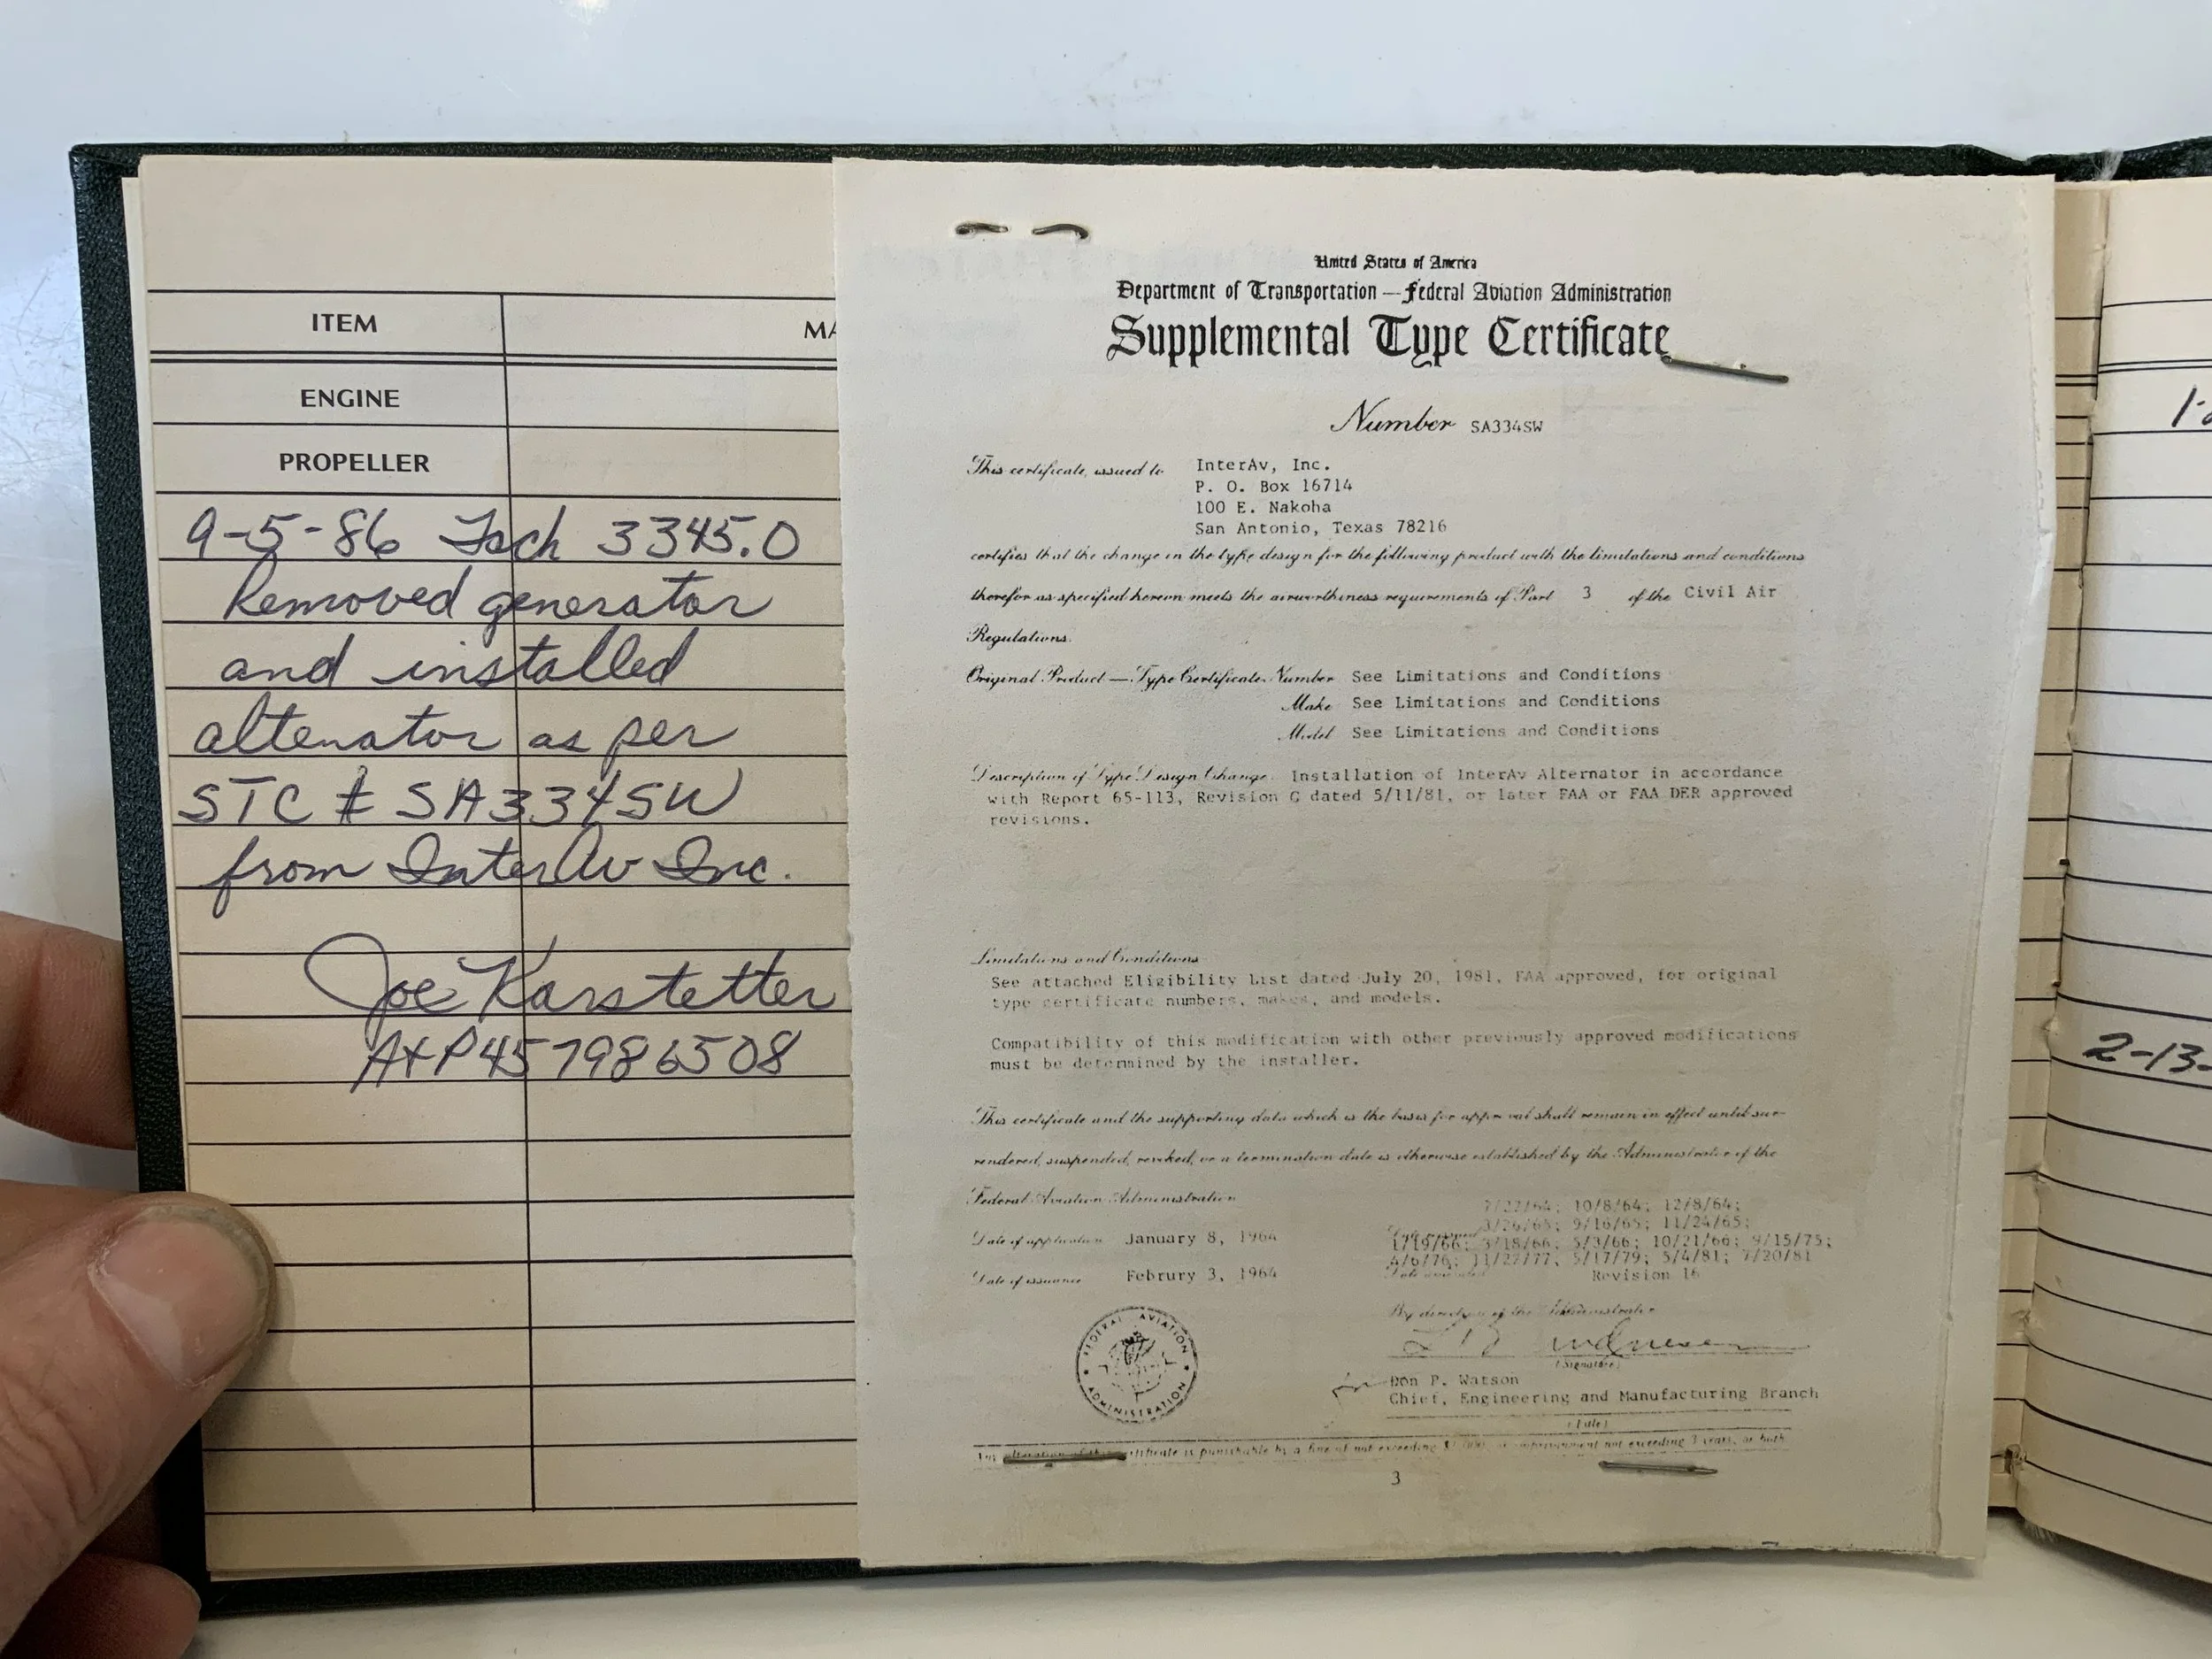 ITEM
MA
ENGINE
PROPELLER
9-5-86 Tach 3345.0
Removed generator
and installed
altenator as per
STC # SA334SW
from InterAv Inc.
Joe Karstetter
A+P 457986508
United States of America
Department of Transportation — Federal Aviation Administration
Supplemental Type Certificate
Number SA334SW
This certificate, issued to InterAv, Inc.
P. O. Box 16714
100 E. Nakoha
San Antonio, Texas 78216
certifies that the change in the type design for the following product with the limitations and conditions
therefor as specified hereon meets the airworthiness requirements of Part 3 of the Civil Air
Regulations.
Original Product — Type Certificate Number See Limitations and Conditions
Make See Limitations and Conditions
Model See Limitations and Conditions
Description of Type Design Change: Installation of InterAv Alternator in accordance
with Report 65-113, Revision G dated 5/11/81, or later FAA or FAA DER approved
revisions.
Limitations and Conditions
See attached Eligibility List dated July 20, 1981, FAA approved, for original
type certificate numbers, makes, and models.
Compatibility of this modification with other previously approved modifications
must be determined by the installer.
This certificate and the supporting data which is the basis for approval shall remain in effect until sur-
rendered, suspended, revoked, or a termination date is otherwise established by the Administrator of the
Federal Aviation Administration
7/27/64; 10/8/64; 12/8/64;
3/26/65; 9/16/65; 11/24/65;
Date of application January 8, 1964
1/19/66; 3/18/66; 5/3/66; 10/21/66; 9/15/75;
4/6/76; 11/27/77; 5/17/79; 5/4/81; 7/20/81
Date of issuance Februry 3, 1964
Date amended Revision 16
By direction of the Administrator
(Signature)
FEDERAL AVIATION ADMINISTRATION
for Don P. Watson
Chief, Engineering and Manufacturing Branch
(Title)
Any alteration of this certificate is punishable by a fine of not exceeding $1,000, or imprisonment not exceeding 3 years, or both
3
2-13-